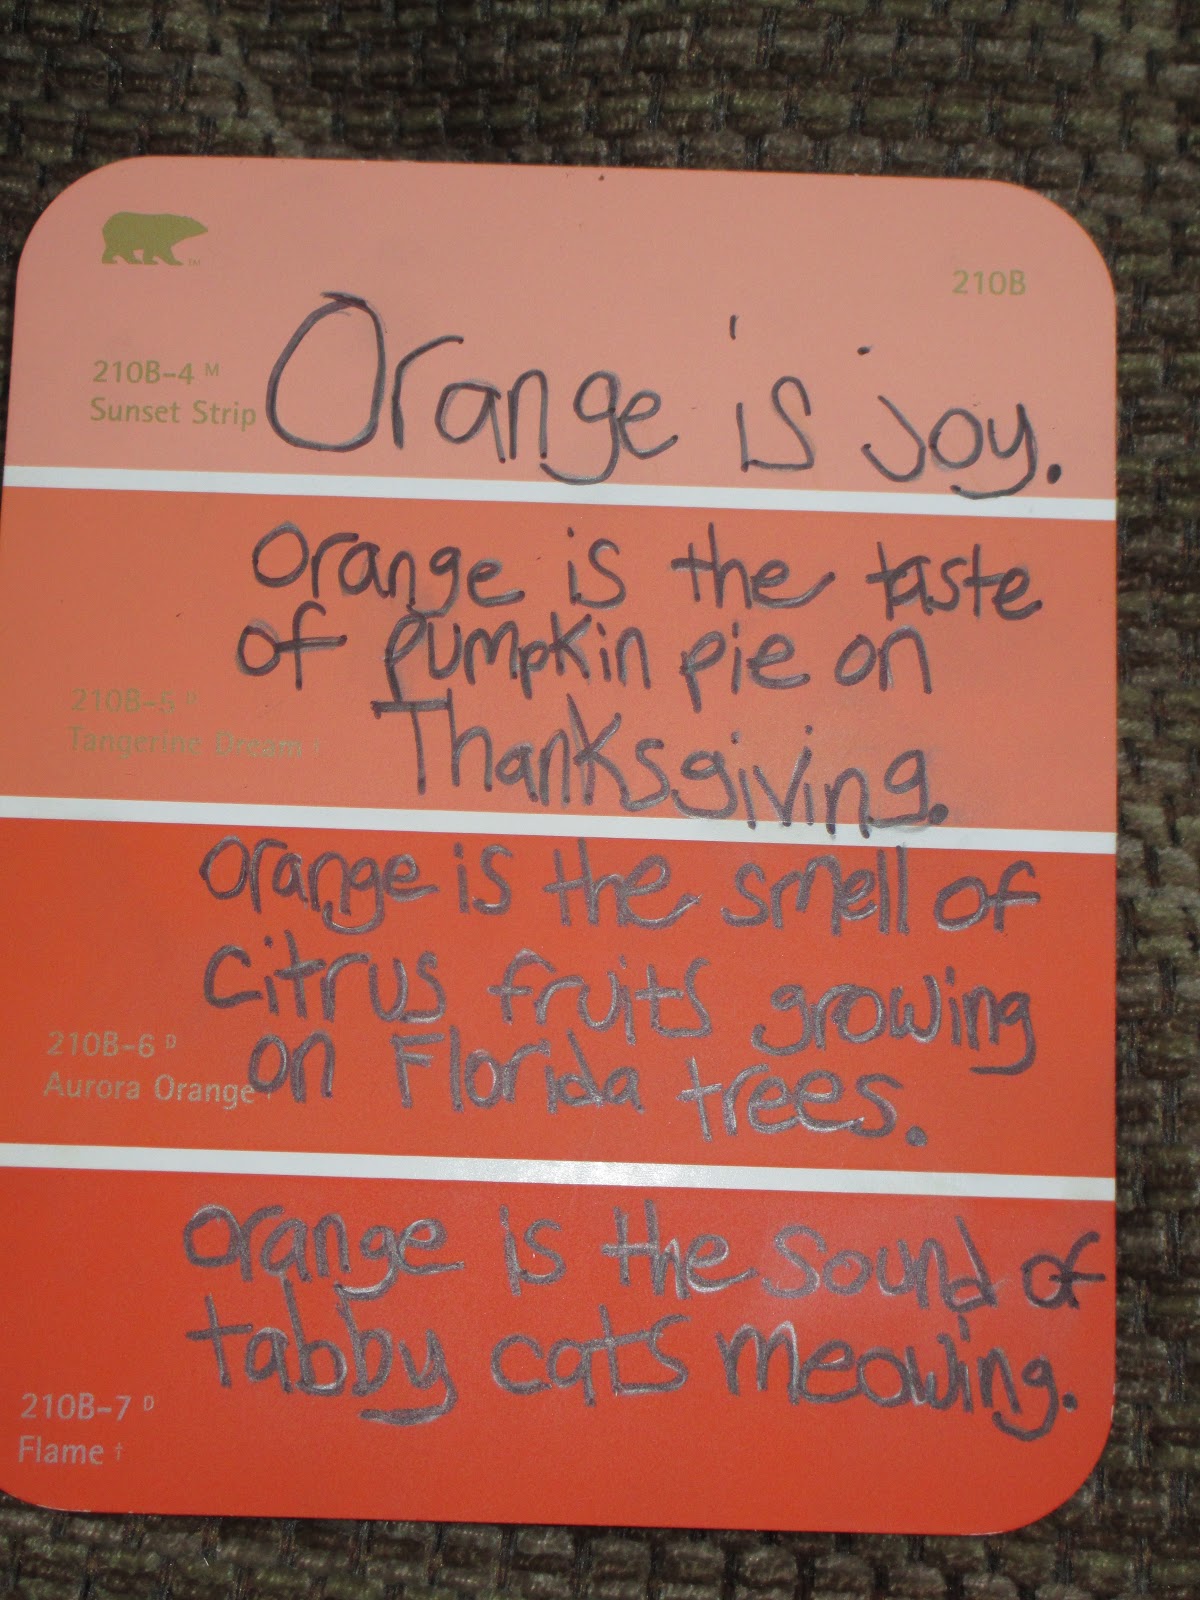 TM
210B
210B-4 M
Sunset Strip
Orange is joy.
Orange is the taste
of pumpkin pie on
210B-5 D
Tangerine Dream †
Thanksgiving.
Orange is the smell of
citrus fruits growing
on Florida trees.
210B-6 D
Aurora Orange †
Orange is the sound of
tabby cats meowing.
210B-7 D
Flame †